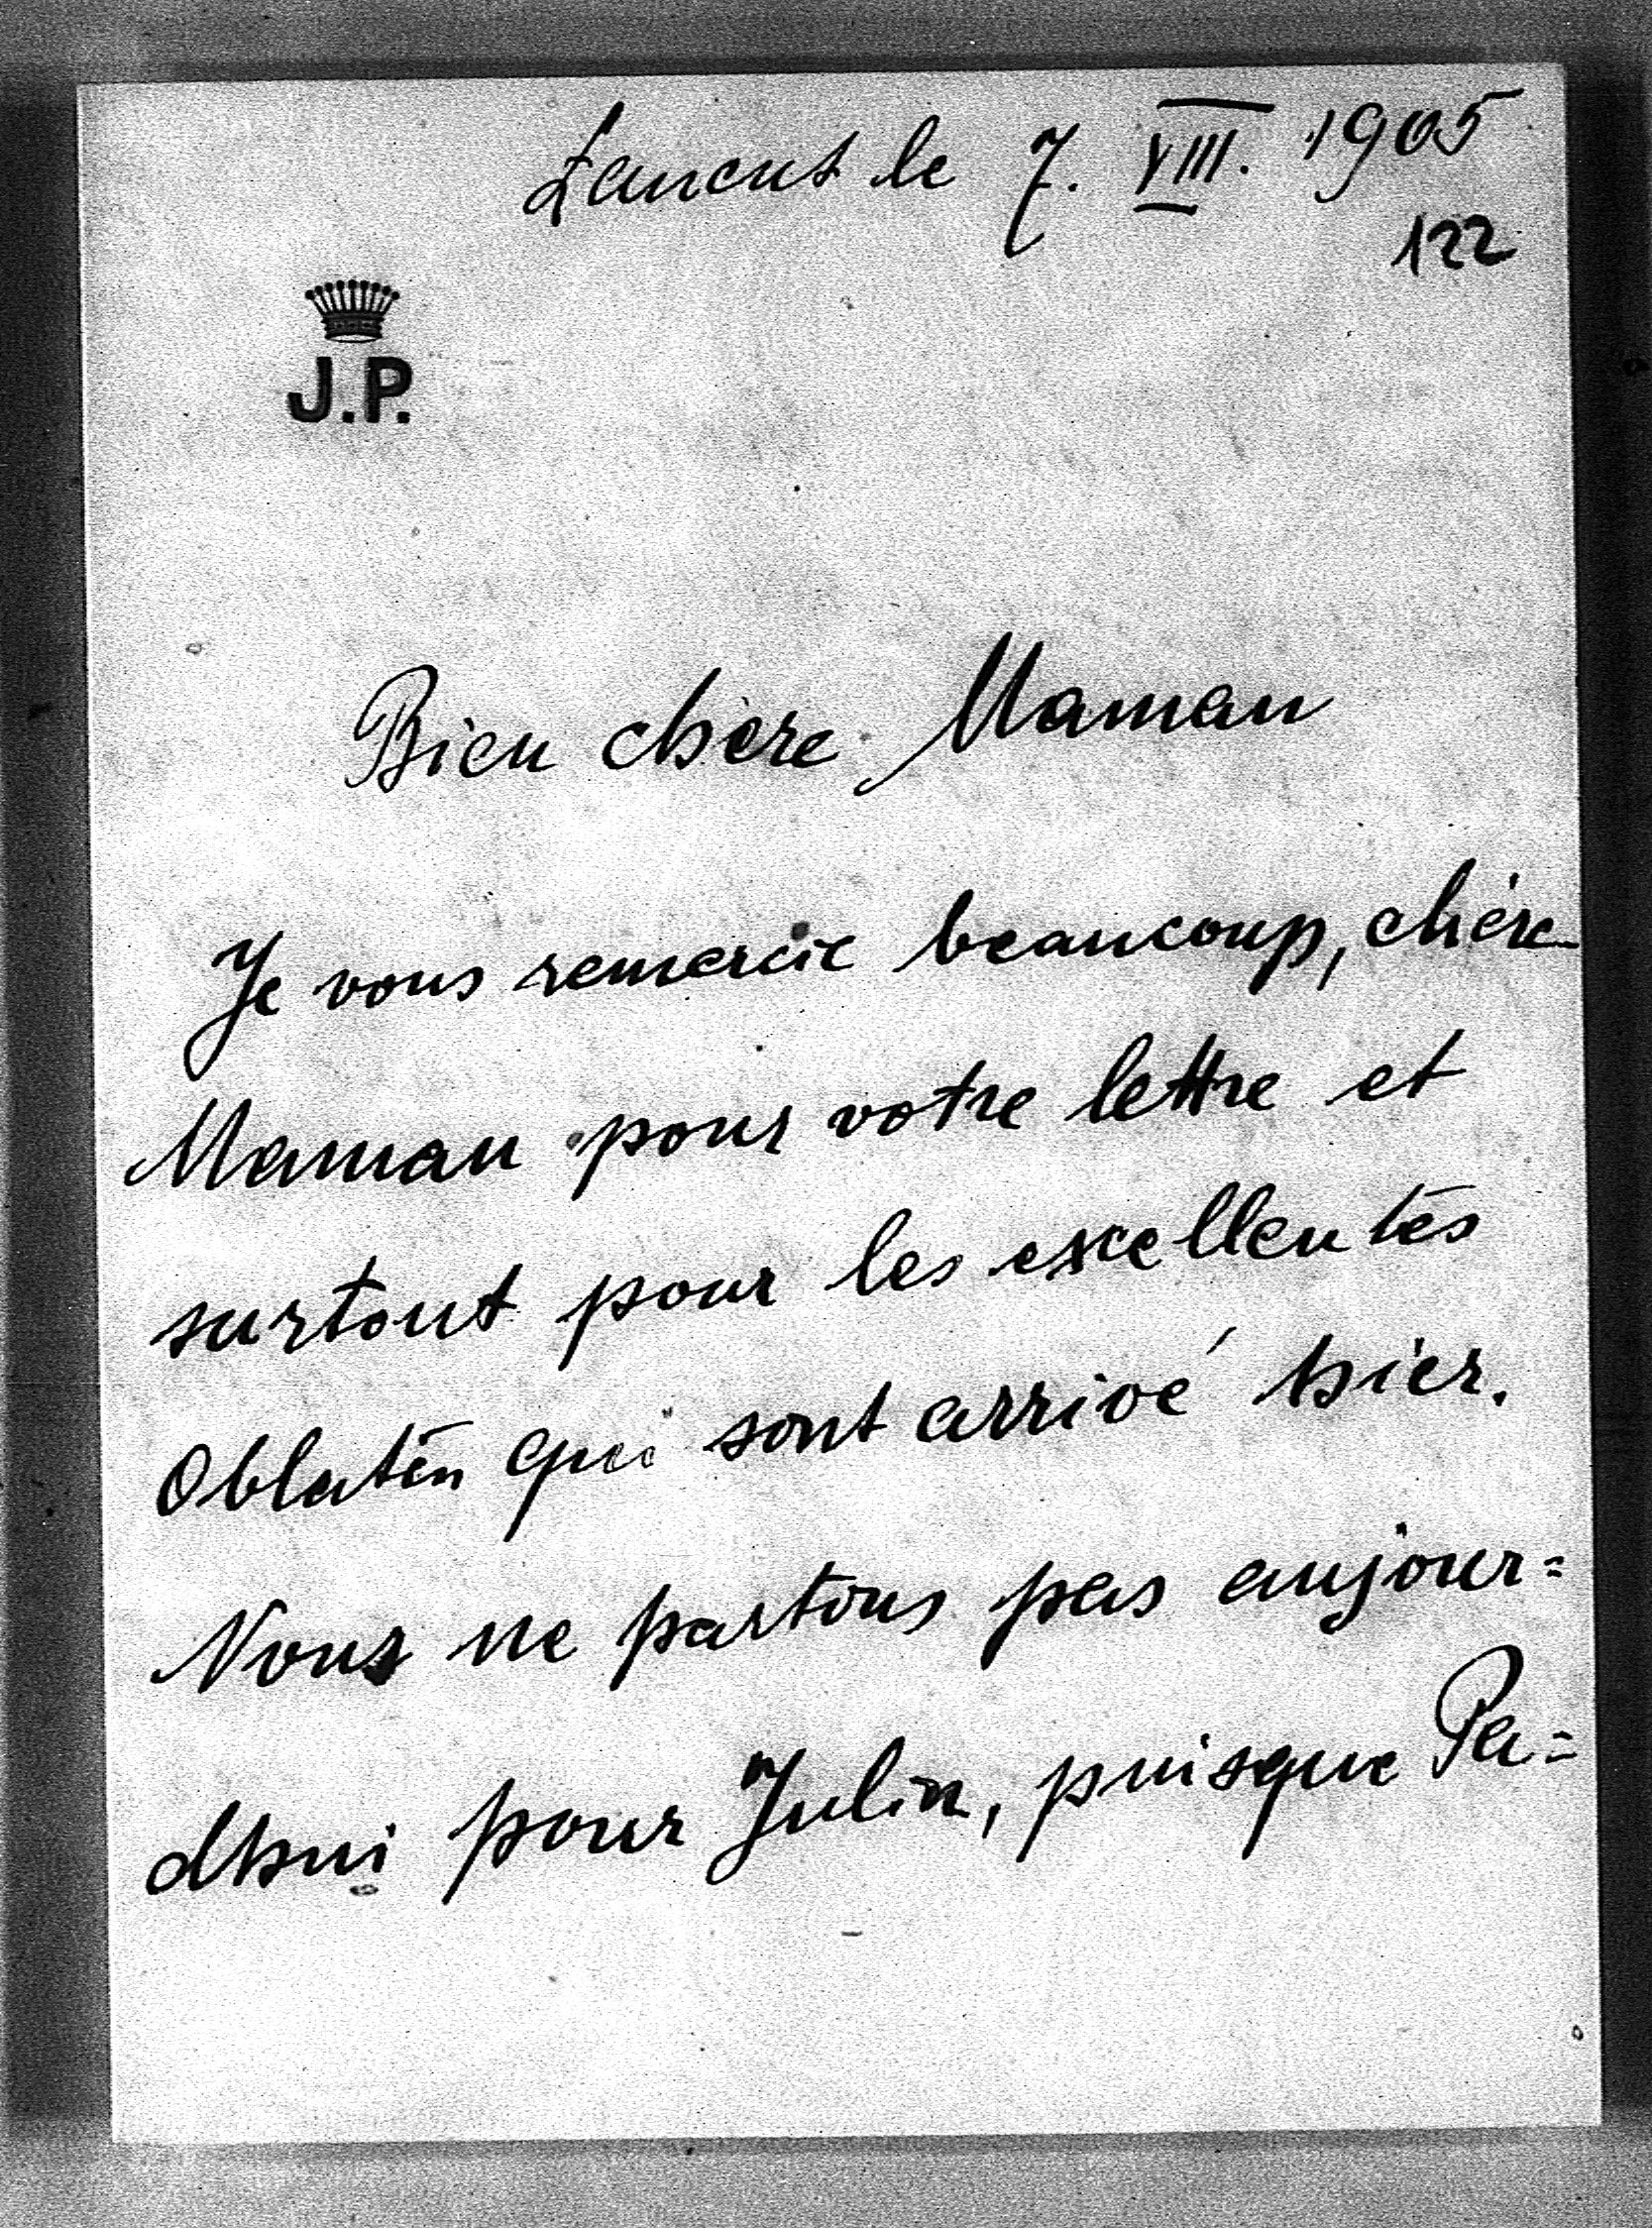 Łancut le 7. VIII. 1905
122
J.P.
Bien chère Maman
Je vous remercie beaucoup, chère
Maman pour votre lettre et
surtout pour les excellentes
Oblaten qui sont arrivé hier.
Nous ne partons pas aujour=
dhui pour Julin, puisque Pa=